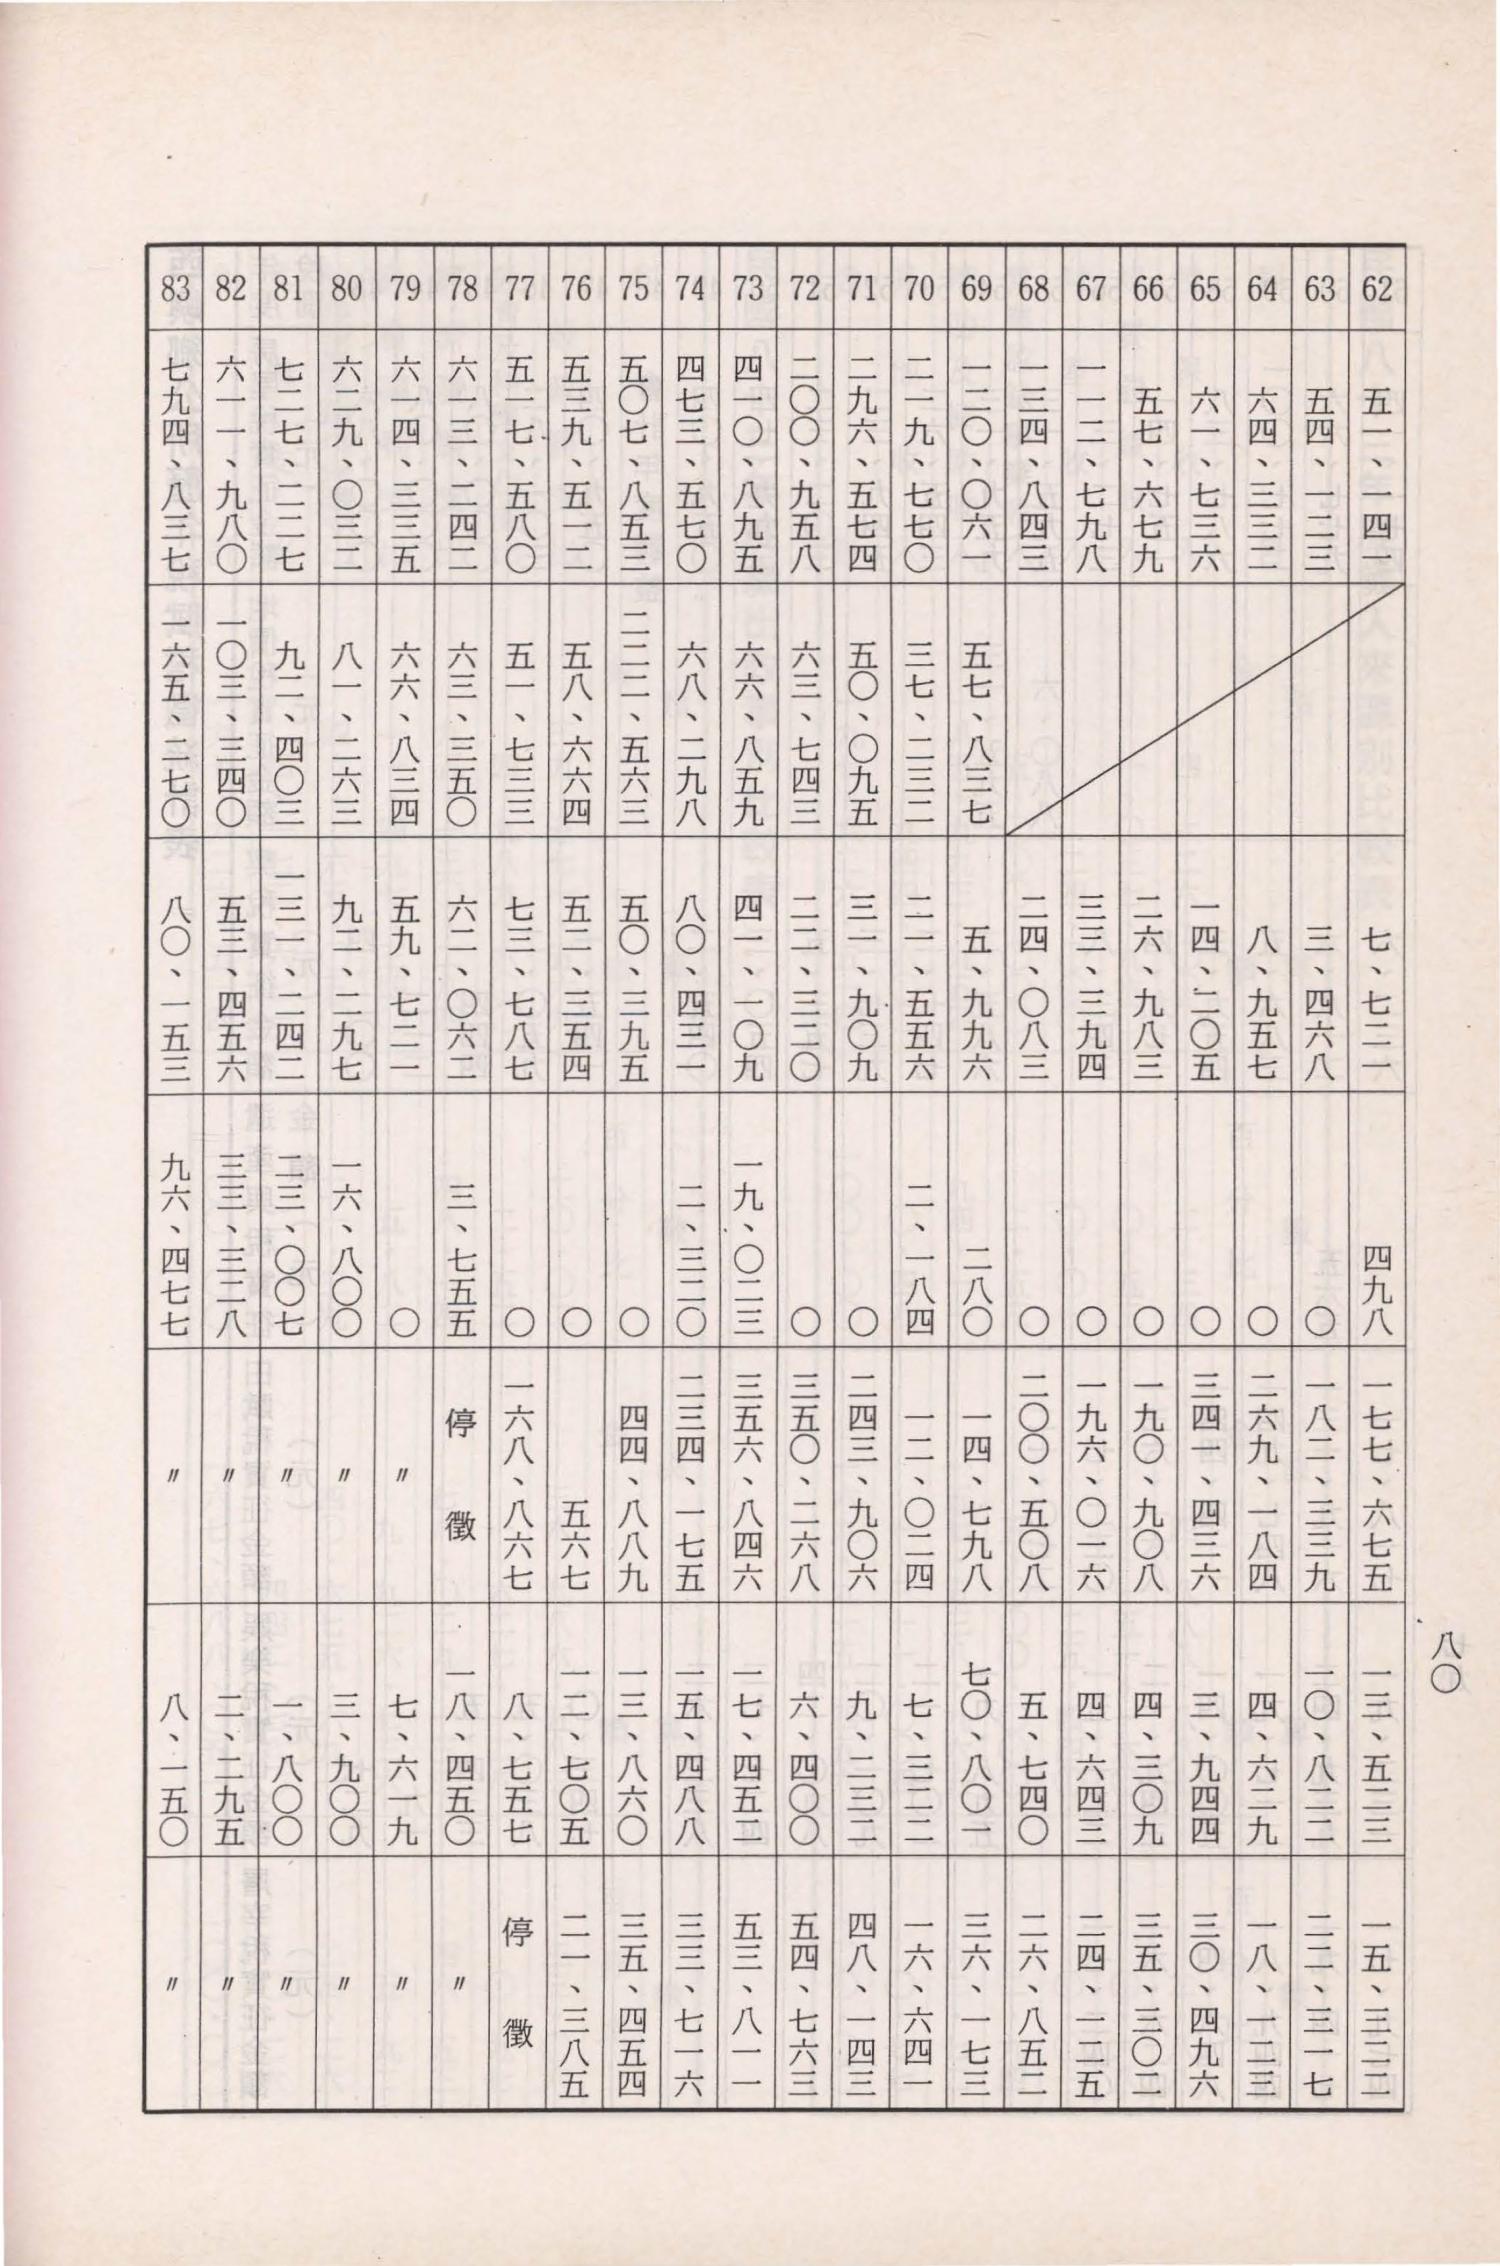 八〇
62 五一、一四一 七、七二一 四九八 一七七、六七五 一三、五二三 一五、三二二
63 五四、一二三 三、四六八 〇 一八二、三三九 一〇、八二二 二二、三一七
64 六四、三三二 八、九五七 〇 二六九、一八四 四、六二九 一八、一二三
65 六一、七三六 一四、二〇五 〇 三四一、四三六 三、九四四 三〇、四九六
66 五七、六七九 二六、九八三 〇 一九〇、九〇八 四、三〇九 三五、三〇二
67 一一二、七九八 三三、三九四 〇 一九六、〇一六 四、六四三 二四、一二五
68 一三四、八四三 二四、〇八三 〇 二〇〇、五〇八 五、七四〇 二六、八五二
69 一二〇、〇六一 五七、八三七 五、九九六 二八〇 一四、七九八 七〇、八〇一 三六、一七三
70 二一九、七七〇 三七、二三二 二一、五五六 二、一八四 一二、〇二四 七、三二二 一六、六四一
71 二九六、五七四 五〇、〇九五 三一、九〇九 〇 二四三、九〇六 九、二三二 四八、一四三
72 二〇〇、九五八 六三、七四三 二二、三二〇 〇 三五〇、二六八 六、四〇〇 五四、七六三
73 四一〇、八九五 六六、八五九 四一、一〇九 一九、〇二三 三五六、八四六 一七、四五二 五三、八一一
74 四七三、五七〇 六八、二九八 八〇、四三一 二、三二〇 二三四、一七五 一五、四八八 三三、七一六
75 五〇七、八五三 二二二、五六三 五〇、三九五 〇 四四、八八九 一三、八六〇 三五、四五四
76 五三九、五一二 五八、六六四 五二、三五四 〇 五六七 一二、七〇五 二一、三八五
77 五一七、五八〇 五一、七三三 七三、七八七 〇 一六八、八六七 八、七五七 停徵
78 六一三、二四二 六三、三五〇 六二、〇六二 三、七五五 停徵 一八、四五〇 〃
79 六一四、三三五 六六、八三四 五九、七二一 〇 〃 七、六一九 〃
80 六二九、〇三二 八一、二六三 九二、二九七 一六、八〇〇 〃 三、九〇〇 〃
81 七二七、二二七 九二、四〇三 一三一、二四二 二三、〇〇七 〃 一、八〇〇 〃
82 六一一、九八〇 一〇三、三四〇 五三、四五六 三三、三二八 〃 二、二九五 〃
83 七九四、八三七 一六五、二七〇 八〇、一五三 九六、四七七 〃 八、一五〇 〃